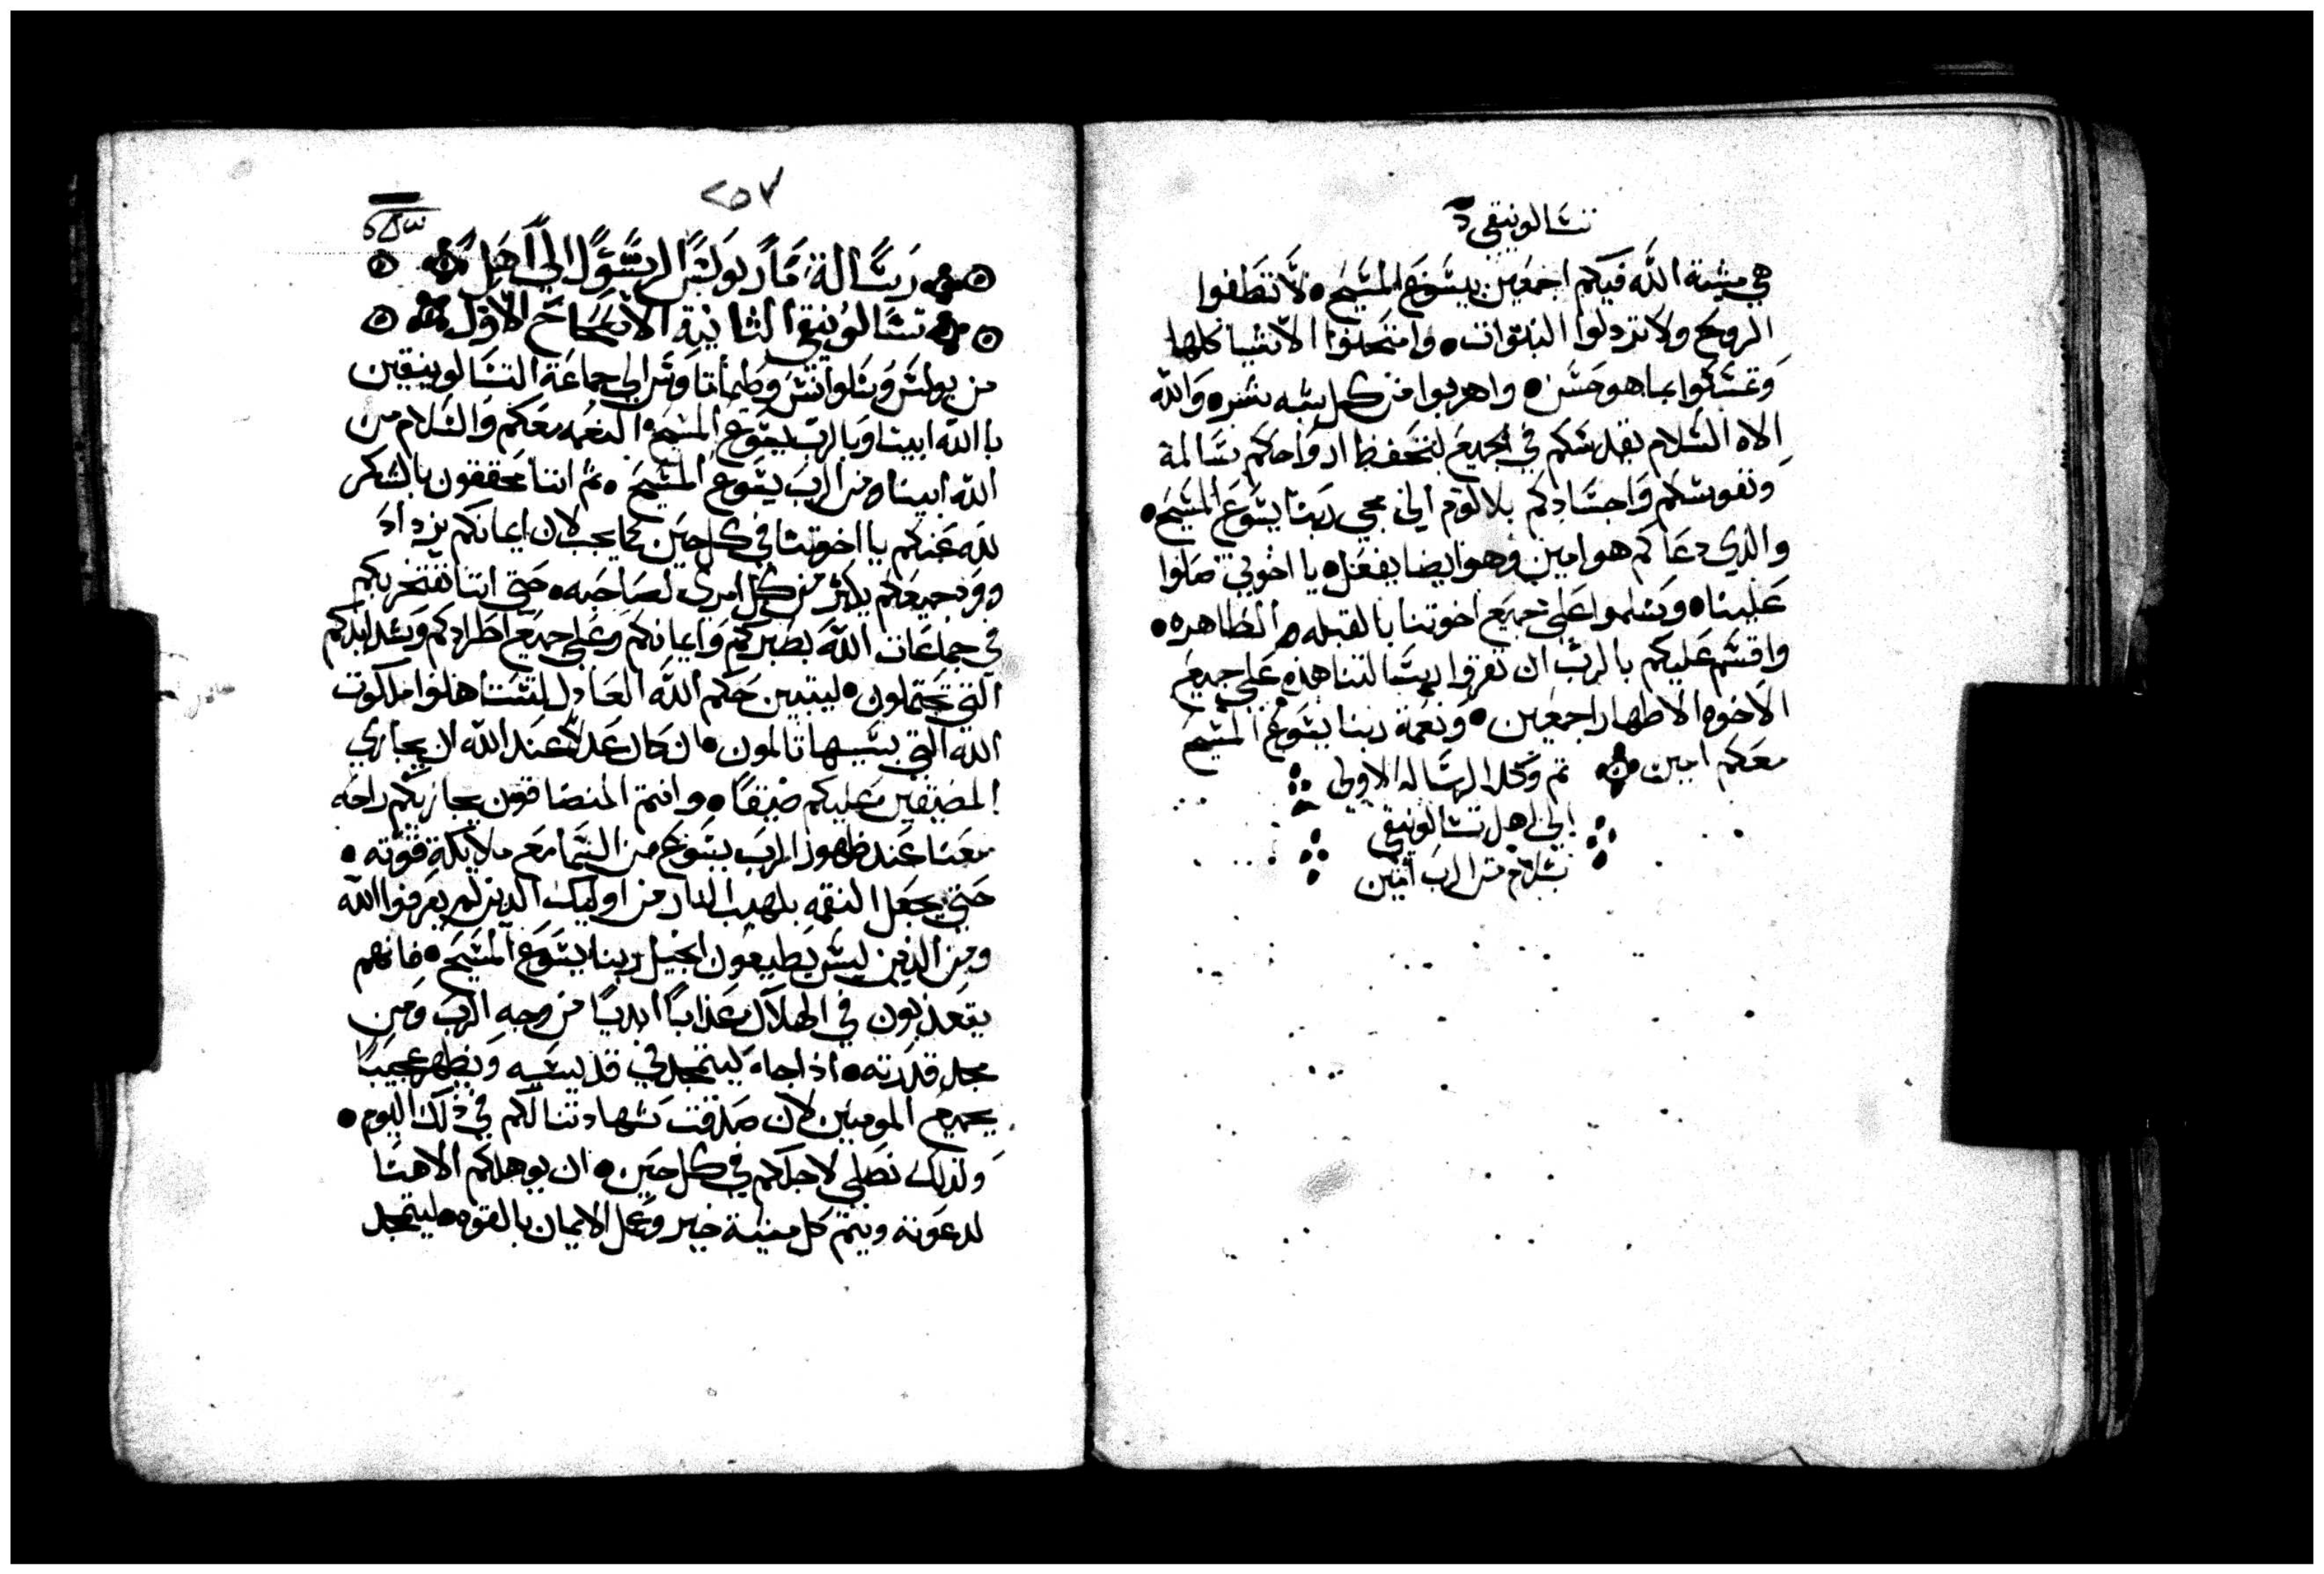 تسالونيقي د
هي مشية الله فيكم اجمعين بيسوع المسيح • لا تطفوا
الروح ولا تردلوا النبوات • وامتحنوا الاشيا كلها
وتمسكوا بما هو حسن • واهربوا من كل شبه شر • والله
الاه السلام يقدسكم في الجميع لتحفظ ارواحكم سالمة
ونفوسكم واجسادكم بلا لوم الي مجي ربنا يسوع المسيح •
والذي دعاكم هو امين وهو ايضا يفعل • يا اخوتي صلوا
علينا • وسلموا علي جميع اخوتنا بالقبله الطاهره •
واقسم عليكم بالرب ان تقروا رسالتنا هذه علي جميع
الاخوه الاطهار اجمعين • ونعمة ربنا يسوع المسيح
معكم امين تم وكملا الرساله الاولي
الي اهل تسالونيقي
بسلام من الرب امين
٢٥٧
رسالة مار بولس الرسول الي اهل
تسالونيقي الثانية الاصحاح الاول
من بولس وسلوانس وطيماتاوس الي جماعة التسالونيقين
بالله ابينا وبالرب يسوع المسيح النعمه معكم والسلام من
الله ابينا • من الرب يسوع المسيح • ثم اننا محققون بالشكر
لله عنكم يا اخوتنا في كل حين كما يجب لان ايمانكم يزداد
وود جميعكم يكثر من كل امري لصاحبه • حتي اننا نفتخر بكم
في جماعات الله بصبركم وايمانكم وعلي جميع اطرادكم وشدايدكم
التي تحتملون • ليتبين حكم الله العادل لتستاهلوا ملكوت
الله التي بسببها تالمون • ان كان عدلا عند الله ان يجازي
المضيقين عليكم ضيقا • وانتم المتضاقون يجازيكم راحه
معنا عند ظهور الرب يسوع من السما مع ملايكة قوته •
حتي يجعل النقمه بلهيب النار من اوليك الدين لم يعرفوا الله
ومن الذين ليس يطيعون انجيل ربنا يسوع المسيح • فانهم
يتعذبون في الهلاك عذابا ابديا من وجه الرب ومن
مجد قدرته • اذا جاه ليتمجد في قديسيه ويظهر عجيبا
بجميع المومنين لان صدقت شهادتنا لكم في ذلك اليوم •
ولذلك نصلي لاجلكم في كل حين • ان يوهلكم الاهنا
لدعوته ويتم كل مشية خير وعمل الايمان بالقوه • ليتمجد